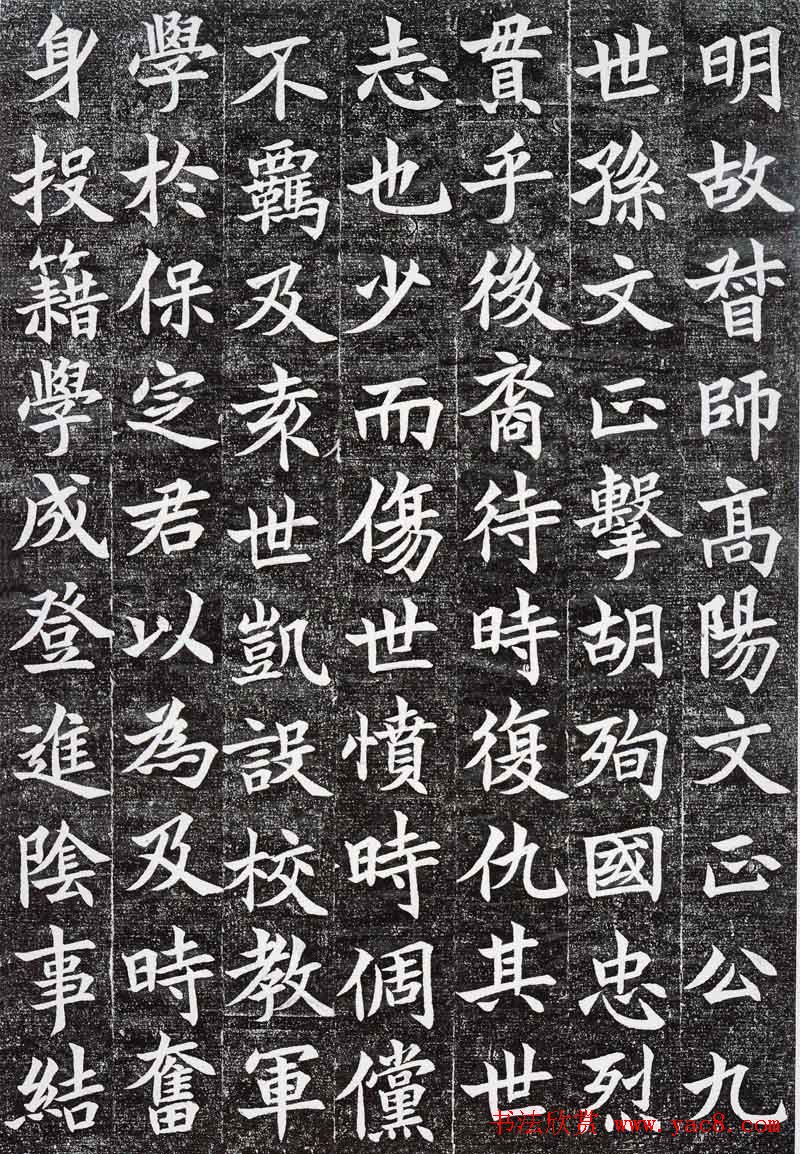 明故督師高陽文正公九
世孫文正擊胡殉國忠烈
貫乎後裔待時復仇其世
志也少而傷世憤時倜儻
不羈及袁世凱設校教軍
學於保定君以為及時奮
身投籍學成登進陰事結
书法欣赏 www.yac8.com